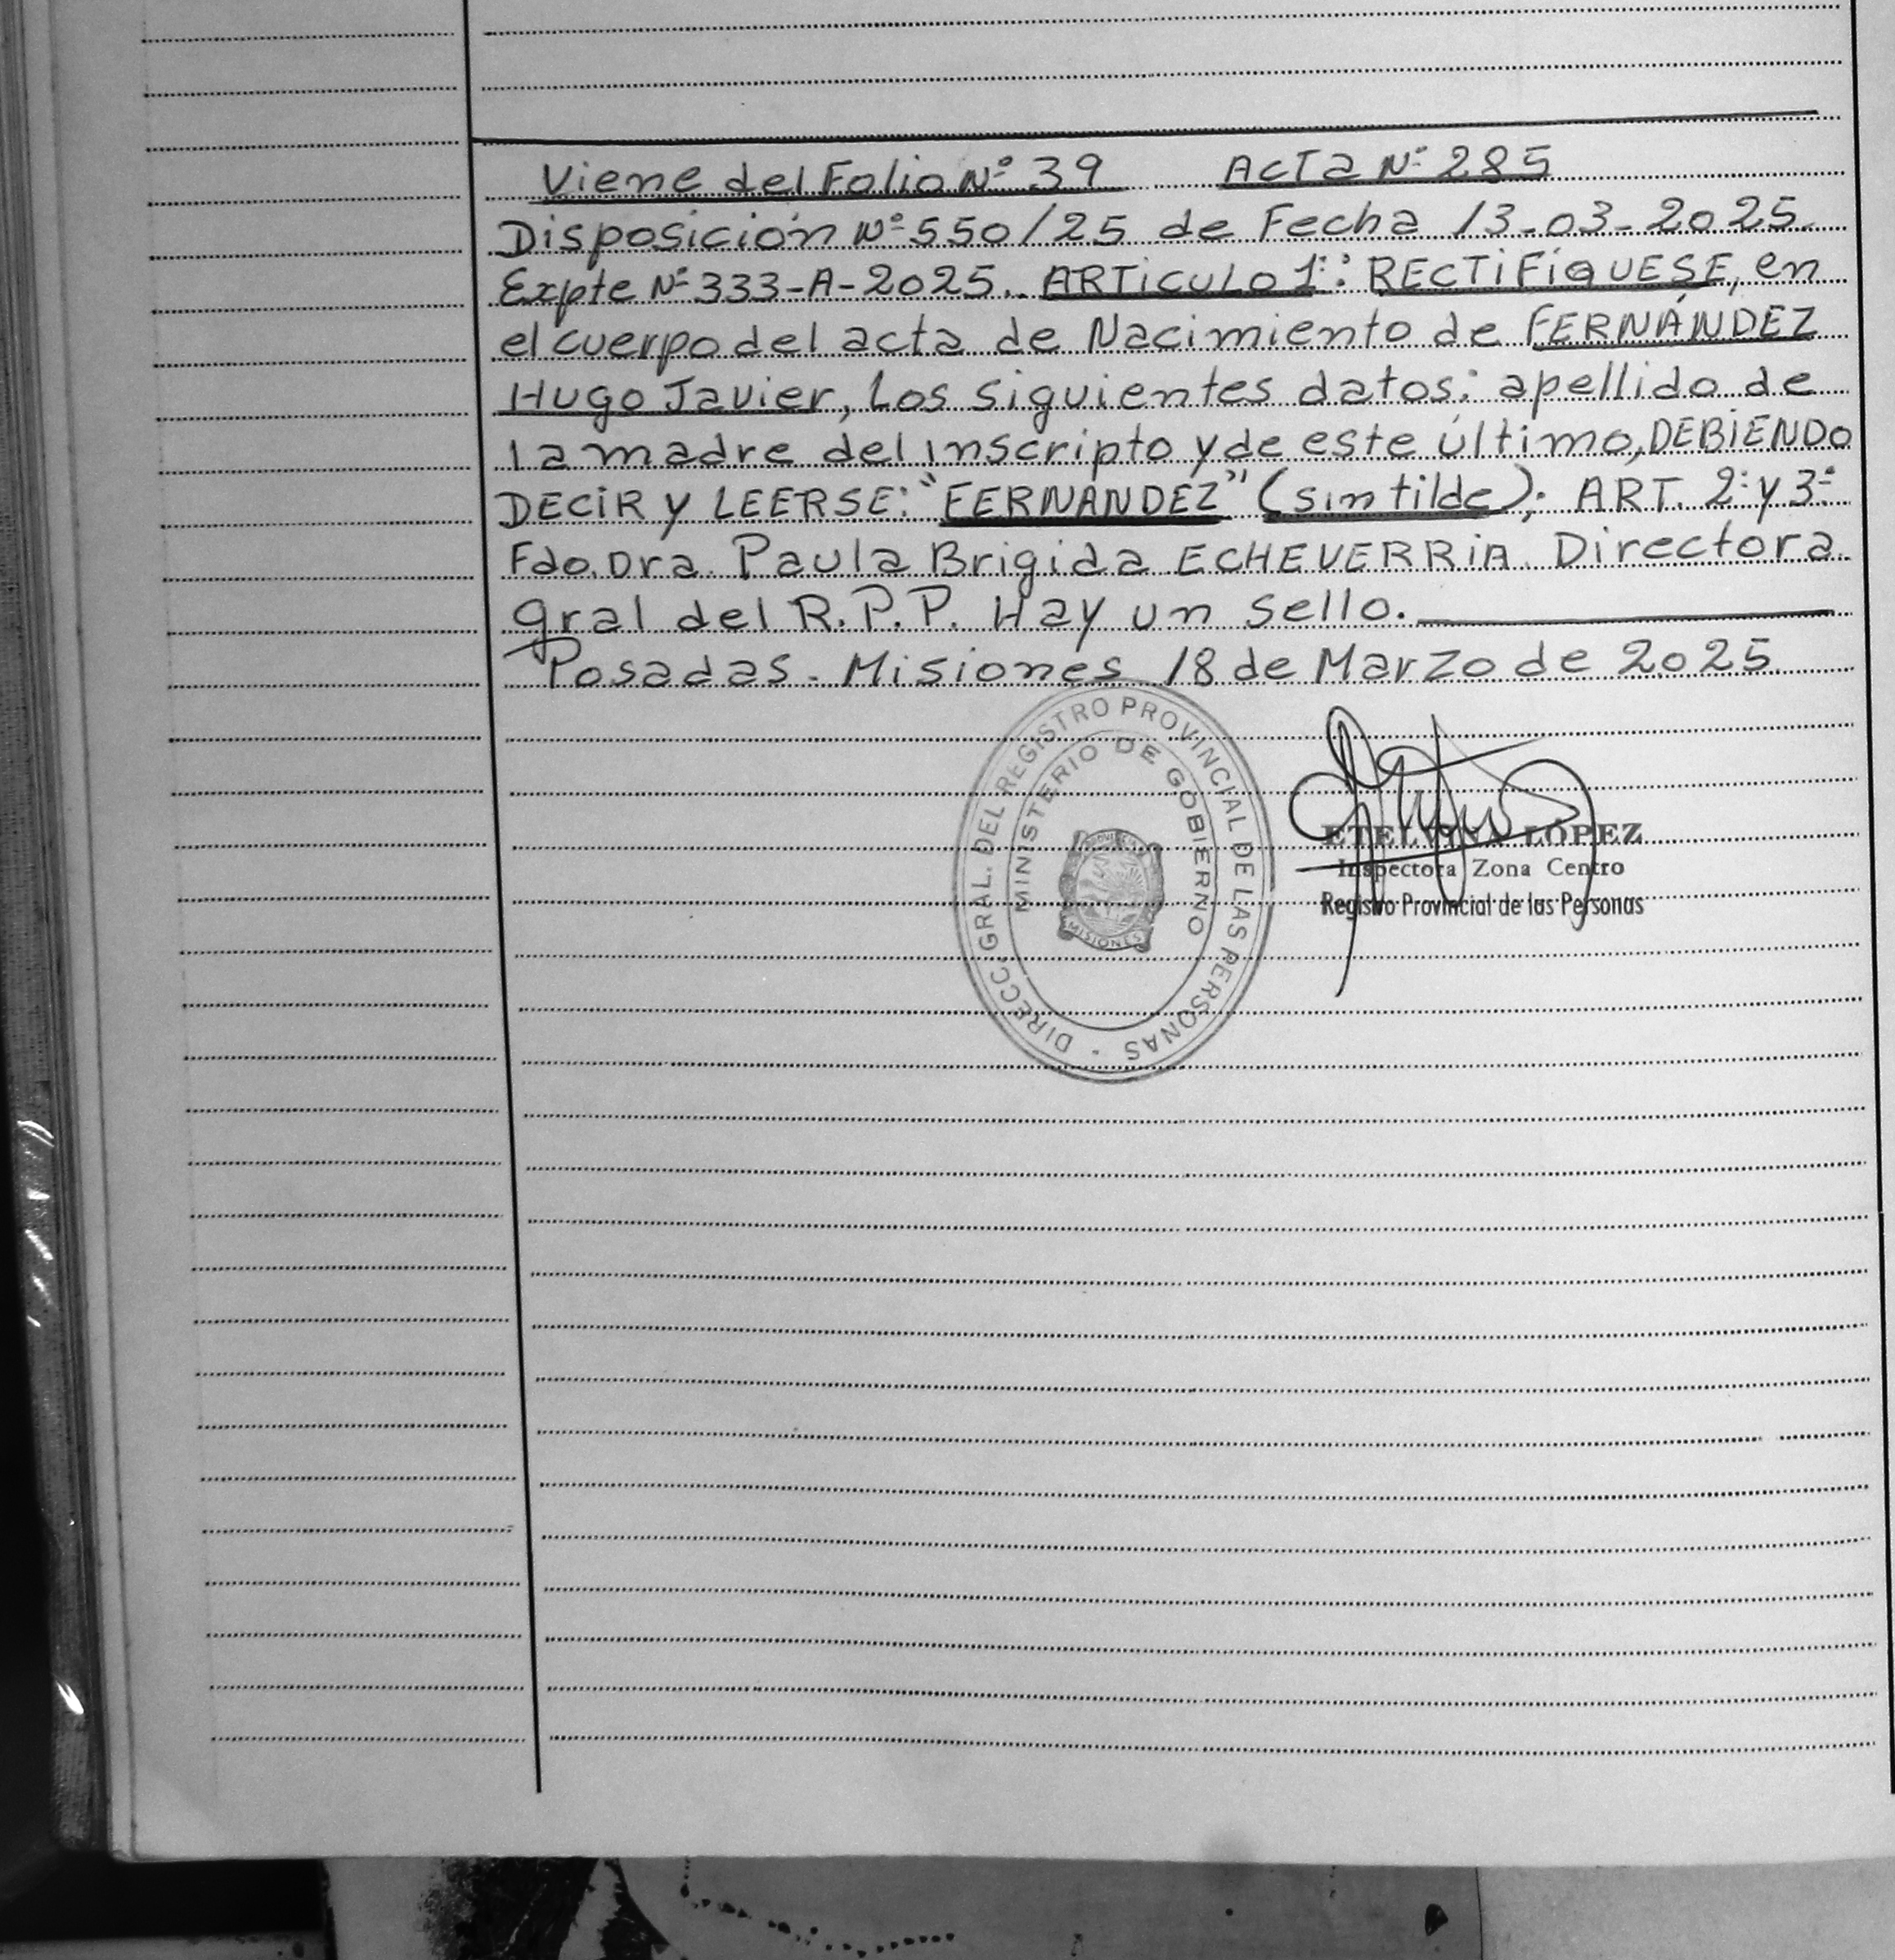 Viene del Folio Nº 39 ACTA Nº 285
Disposición Nº 550/25 de Fecha 13-03-2025.
Expte Nº 333-A-2025. ARTiCULO 1º: RECTiFíQUESE, en
el cuerpo del acta de Nacimiento de FERNÁNDEZ
Hugo Javier, Los siguientes datos: apellido de
la madre del inscripto y de este último, DEBIENDO
DECiR y LEERSE: "FERNANDEZ" (sin tilde); ART. 2º y 3º
Fdo. Dra. Paula Brigida ECHEVERRiA. Directora
gral del R.P.P. Hay un sello.
Posadas. Misiones 18 de Marzo de 2025.
DIRECC. GRAL. DEL REGISTRO PROVINCIAL DE LAS PERSONAS
MINISTERIO DE GOBIERNO
MISIONES
ETELVINA LOPEZ
Inspectora Zona Centro
Registro Provincial de las Personas